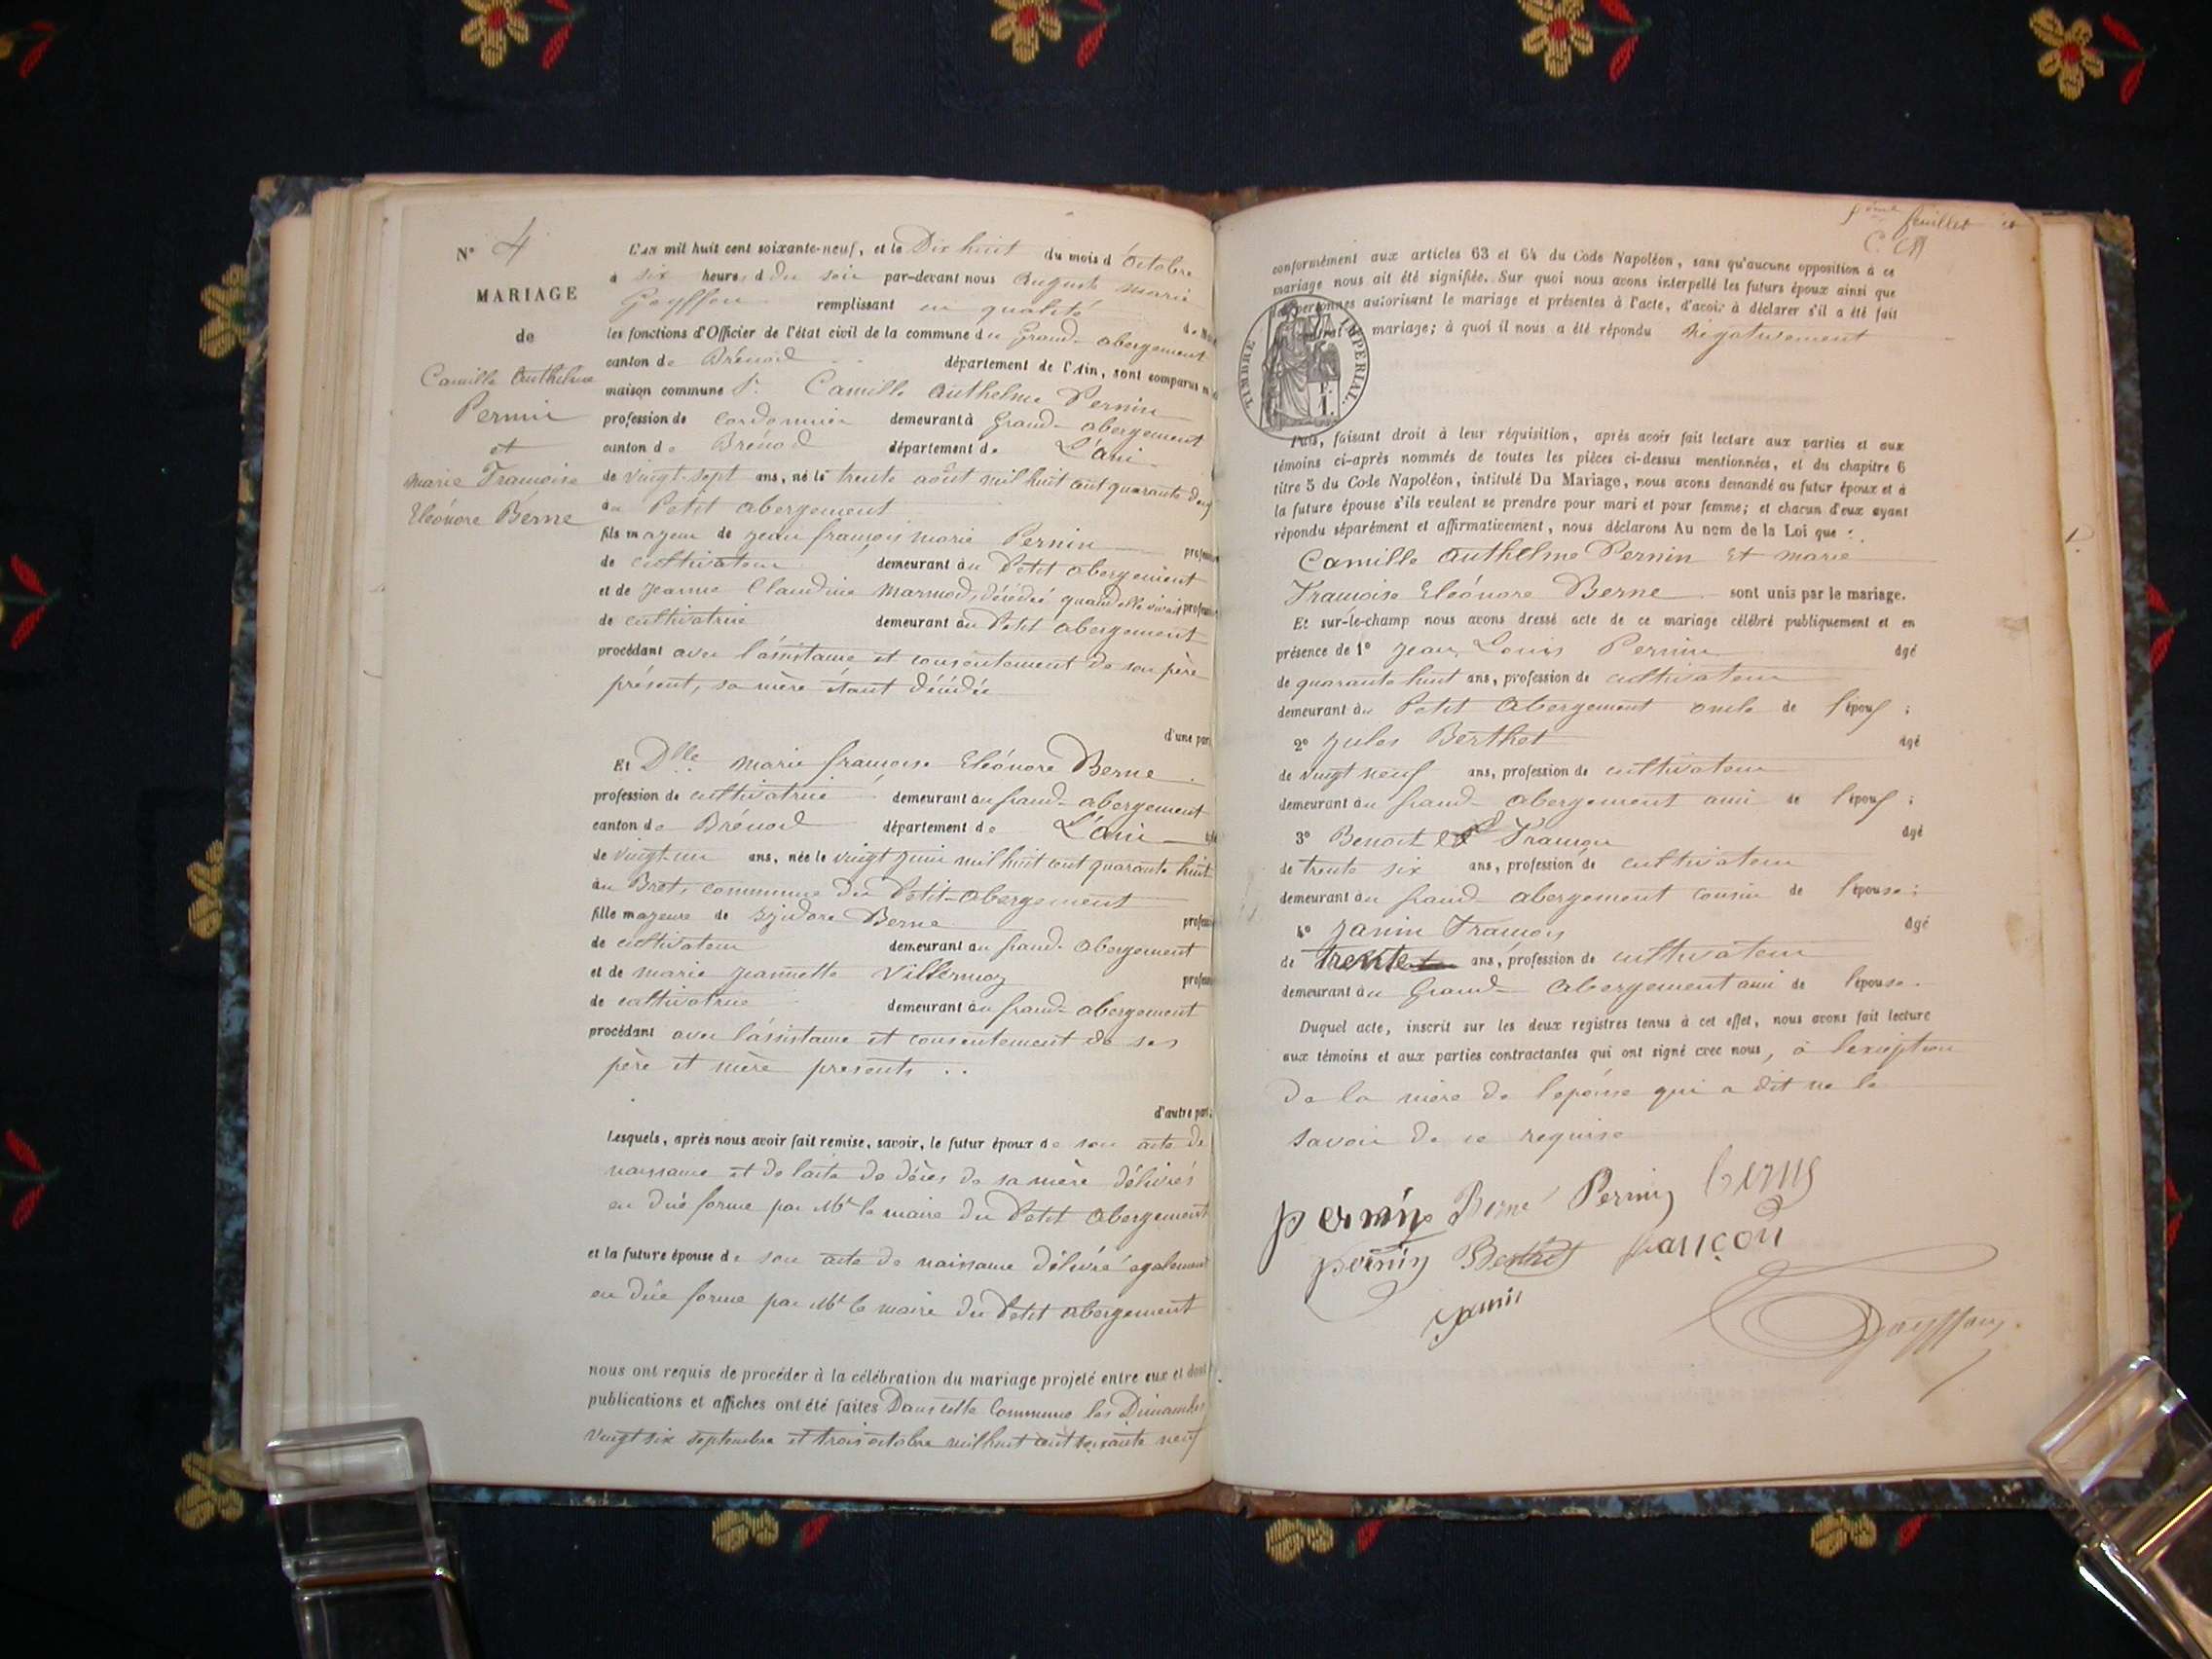 N° 4
MARIAGE
de
Camille Anthelme
Pernin
et
Marie Françoise
Eléonore Berne
L'An mil huit cent soixante-neuf, et le Dix huit du mois d'Octobre
à six heures d du soir par-devant nous Auguste Marie
Goyffon remplissant en qualité de
les fonctions d'Officier de l'état civil de la commune du Grand-abergement
canton de Brénod département de l'Ain, sont comparus
maison commune Sr Camille Anthelme Pernin
profession de cordonnier demeurant à Grand-abergement
canton de Brénod département de L'ain
de vingt-sept ans, né le trente août mil huit cent quarante deux
au Petit abergement
fils majeur de jean françois marie Pernin
de cultivateur demeurant au Petit abergement
et de Jeanne Claudine Marmod, décédée quand elle vivait
de cultivatrice demeurant au Petit abergement
procédant avec l'assistance et consentement de son père
présent, sa mère étant décédée
d'une part
Et Dlle Marie françoise Eléonore Berne
profession de cultivatrice demeurant au grand-abergement
canton de Brénod département de L'ain
de vingt-un ans, née le vingt juin mil huit cent quarante huit
au Bret, commune du Petit-abergement
fille majeure de Izidore Berne
de cultivateur demeurant au grand-abergement
et de marie jeannette Villermoz
de cultivatrice demeurant au grand-abergement
procédant avec l'assistance et consentement de ses
père et mère présents ..
d'autre part;
Lesquels, après nous avoir fait remise, savoir, le futur époux de son acte de
naissance et de l'acte de décès de sa mère délivrés
en dûe forme par Mr le maire du Petit abergement
et la future épouse de son acte de naissance délivré également
en dûe forme par Mr le maire du Petit abergement
nous ont requis de procéder à la célébration du mariage projeté entre eux et dont
publications et affiches ont été faites Dans cette Commune les Dimanches
vingt six septembre et trois octobre mil huit cent soixante neuf
feuillet
conformément aux articles 63 et 64 du Code Napoléon, sans qu'aucune opposition à ce
mariage nous ait été signifiée. Sur quoi nous avons interpellé les futurs époux ainsi que
les personnes autorisant le mariage et présentes à l'acte, d'avoir à déclarer s'il a été fait
mariage; à quoi il nous a été répondu négativement
TIMBRE IMPERIAL.
Puis, faisant droit à leur réquisition, après avoir fait lecture aux parties et aux
témoins ci-après nommés de toutes les pièces ci-dessus mentionnées, et du chapitre 6
titre 5 du Code Napoléon, intitulé Du Mariage, nous avons demandé au futur époux et à
la future épouse s'ils veulent se prendre pour mari et pour femme; et chacun d'eux ayant
répondu séparément et affirmativement, nous déclarons Au nom de la Loi que :
Camille Anthelme Pernin et marie
Françoise Eléonore Berne sont unis par le mariage.
Et sur-le-champ nous avons dressé acte de ce mariage célébré publiquement et en
présence de 1° jean Louis Pernin âgé
de quarante huit ans, profession de cultivateur
demeurant au Petit abergement oncle de l'époux ;
2° jules Berthet âgé
de vingt neuf ans, profession de cultivateur
demeurant au grand-abergement ami de l'époux ;
3° Benoit françon âgé
de trente six ans, profession de cultivateur
demeurant au grand abergement cousin de l'épouse;
4° Janin François âgé
de trente ans, profession de cultivateur
demeurant au Grand-abergement ami de l'épouse.
Duquel acte, inscrit sur les deux registres tenus à cet effet, nous avons fait lecture
aux témoins et aux parties contractantes qui ont signé avec nous, à l'exception
de la mère de l'épouse qui a dit ne le
savoir de ce requise
pernin Berne Pernin berne
pernin Berthet françon
Janin
Goyffon